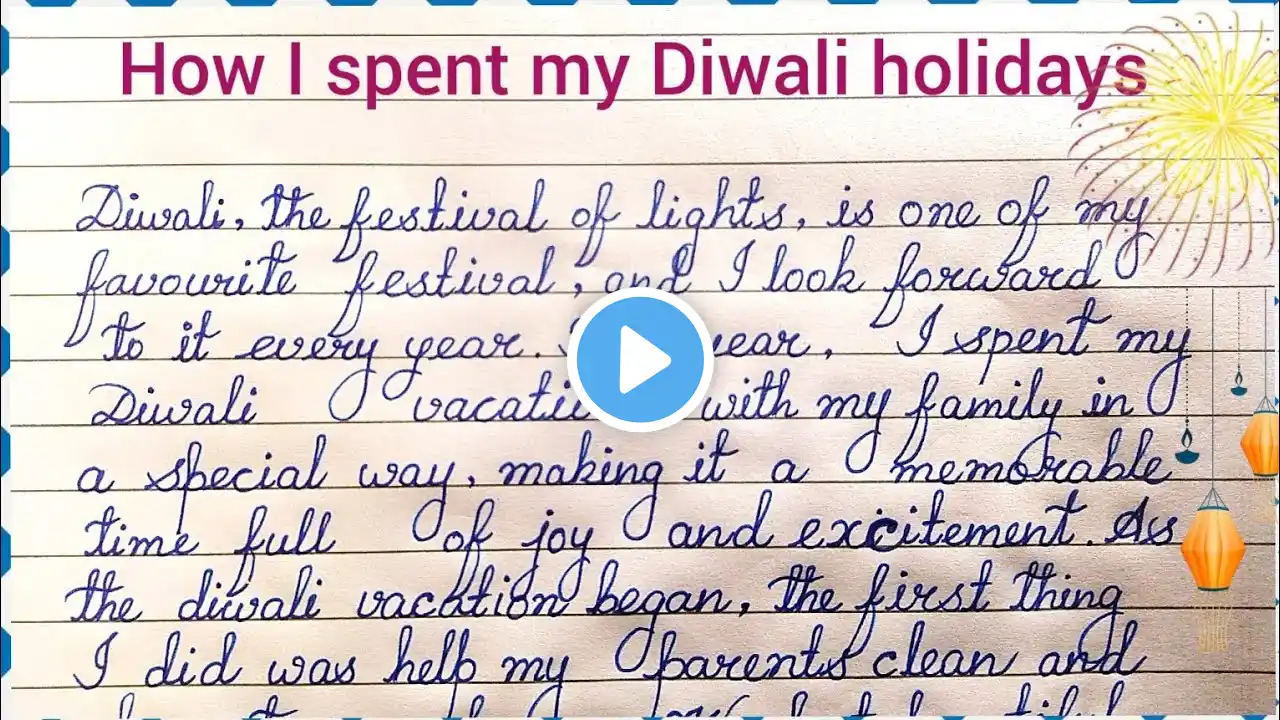 How I spent my Diwali holidays
Diwali, the festival of lights, is one of my
favourite festival, and I look forward
to it every year. year, I spent my
Diwali with my family in
a special way, making it a memorable
time full of joy and excitement. As
the diwali vacation began, the first thing
I did was help my parents clean and